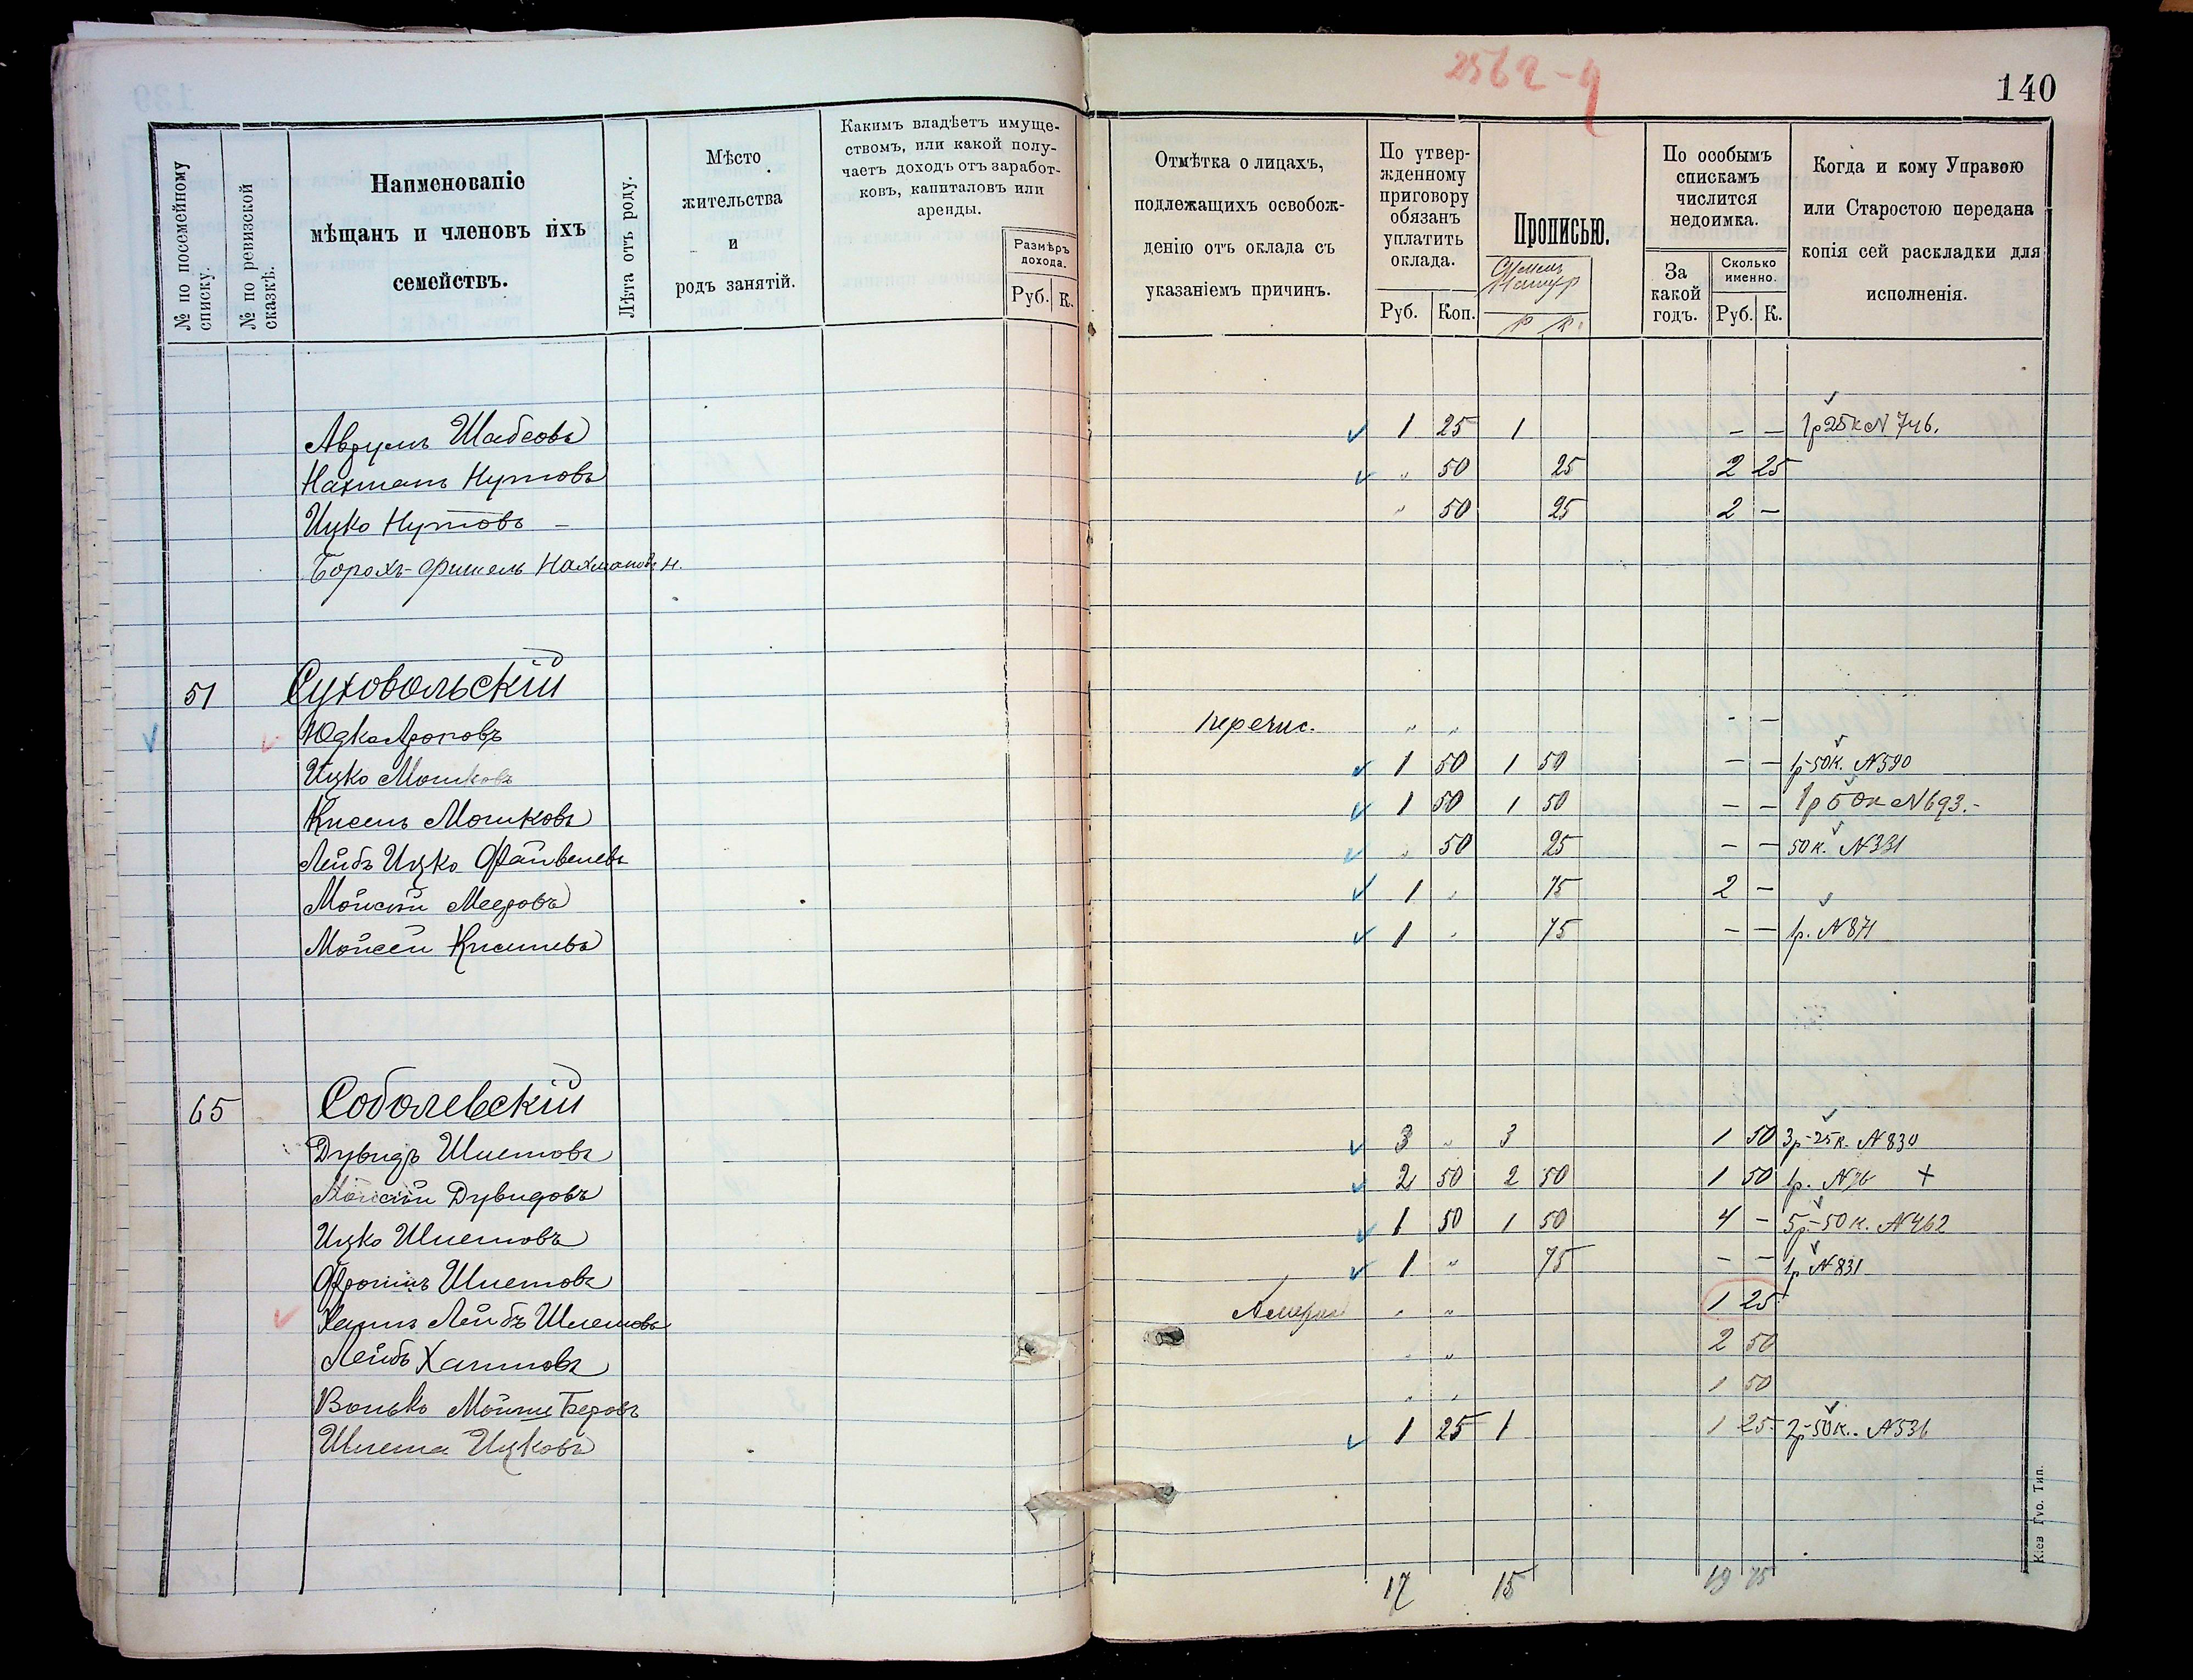 2562-4
140
№ по посемейному списку.
№ по ревизской сказкѣ.
Наименованіе мѣщанъ и членовъ ихъ семействъ.
Лѣта отъ роду.
Мѣсто жительства и родъ занятій.
Какимъ владѣетъ имуществомъ, или какой получаетъ доходъ отъ заработковъ, капиталовъ или аренды.
Размѣръ дохода.
Руб. К.
Отмѣтка о лицахъ, подлежащихъ освобожденію отъ оклада съ указаніемъ причинъ.
По утвержденному приговору обязанъ уплатить оклада.
Руб. Коп.
Прописью.
Р К.
По особымъ спискамъ числится недоимка.
За какой годъ.
Сколько именно.
Руб. К.
Когда и кому Управою или Старостою передана копія сей раскладки для исполненія.
Аврумъ Шабсовъ 1 25 1 — — 1р25к N 746.
Нахманъ Нутовъ „ 50 25 2 25
Ицко Нутовъ — „ 50 25 2 —
Борохъ-Фишель Нахмановъ н.
51 Суховольскій
Юдко Ароновъ перечис. „ „ - —
Ицко Мошковъ 1 50 1 50 — — 1р-50к. N590
Кисель Мошковъ 1 50 1 50 — — 1р 50к N693.-
Лейбъ Ицко Файвелевъ „ 50 25 — — 50к. N331
Мойсей Мееровъ 1 „ 75 2 —
Мойсей Киселевъ 1 „ 75 — — 1р. N871
65 Соболевскій
Дувидъ Шлемовъ 3 „ 3 1 50 3р-25к. N830
Мойсей Дувидовъ 2 50 2 50 1 50 1р. N76 +
Ицко Шлемовъ 1 50 1 50 4 — 5р-50к. N462
Фроимъ Шлемовъ 1 „ 75 — — 1р N831
Хаимъ Лейбъ Шлемовъ „ „ 1 25
Лейбъ Хаимовъ „ „ 2 50
Волько Мойше Беровъ „ „ 1 50
Шлема Ицковъ 1 25 1 1 25 2р-50к. N536
17 15 19 75
Кіев Губ. Тип.